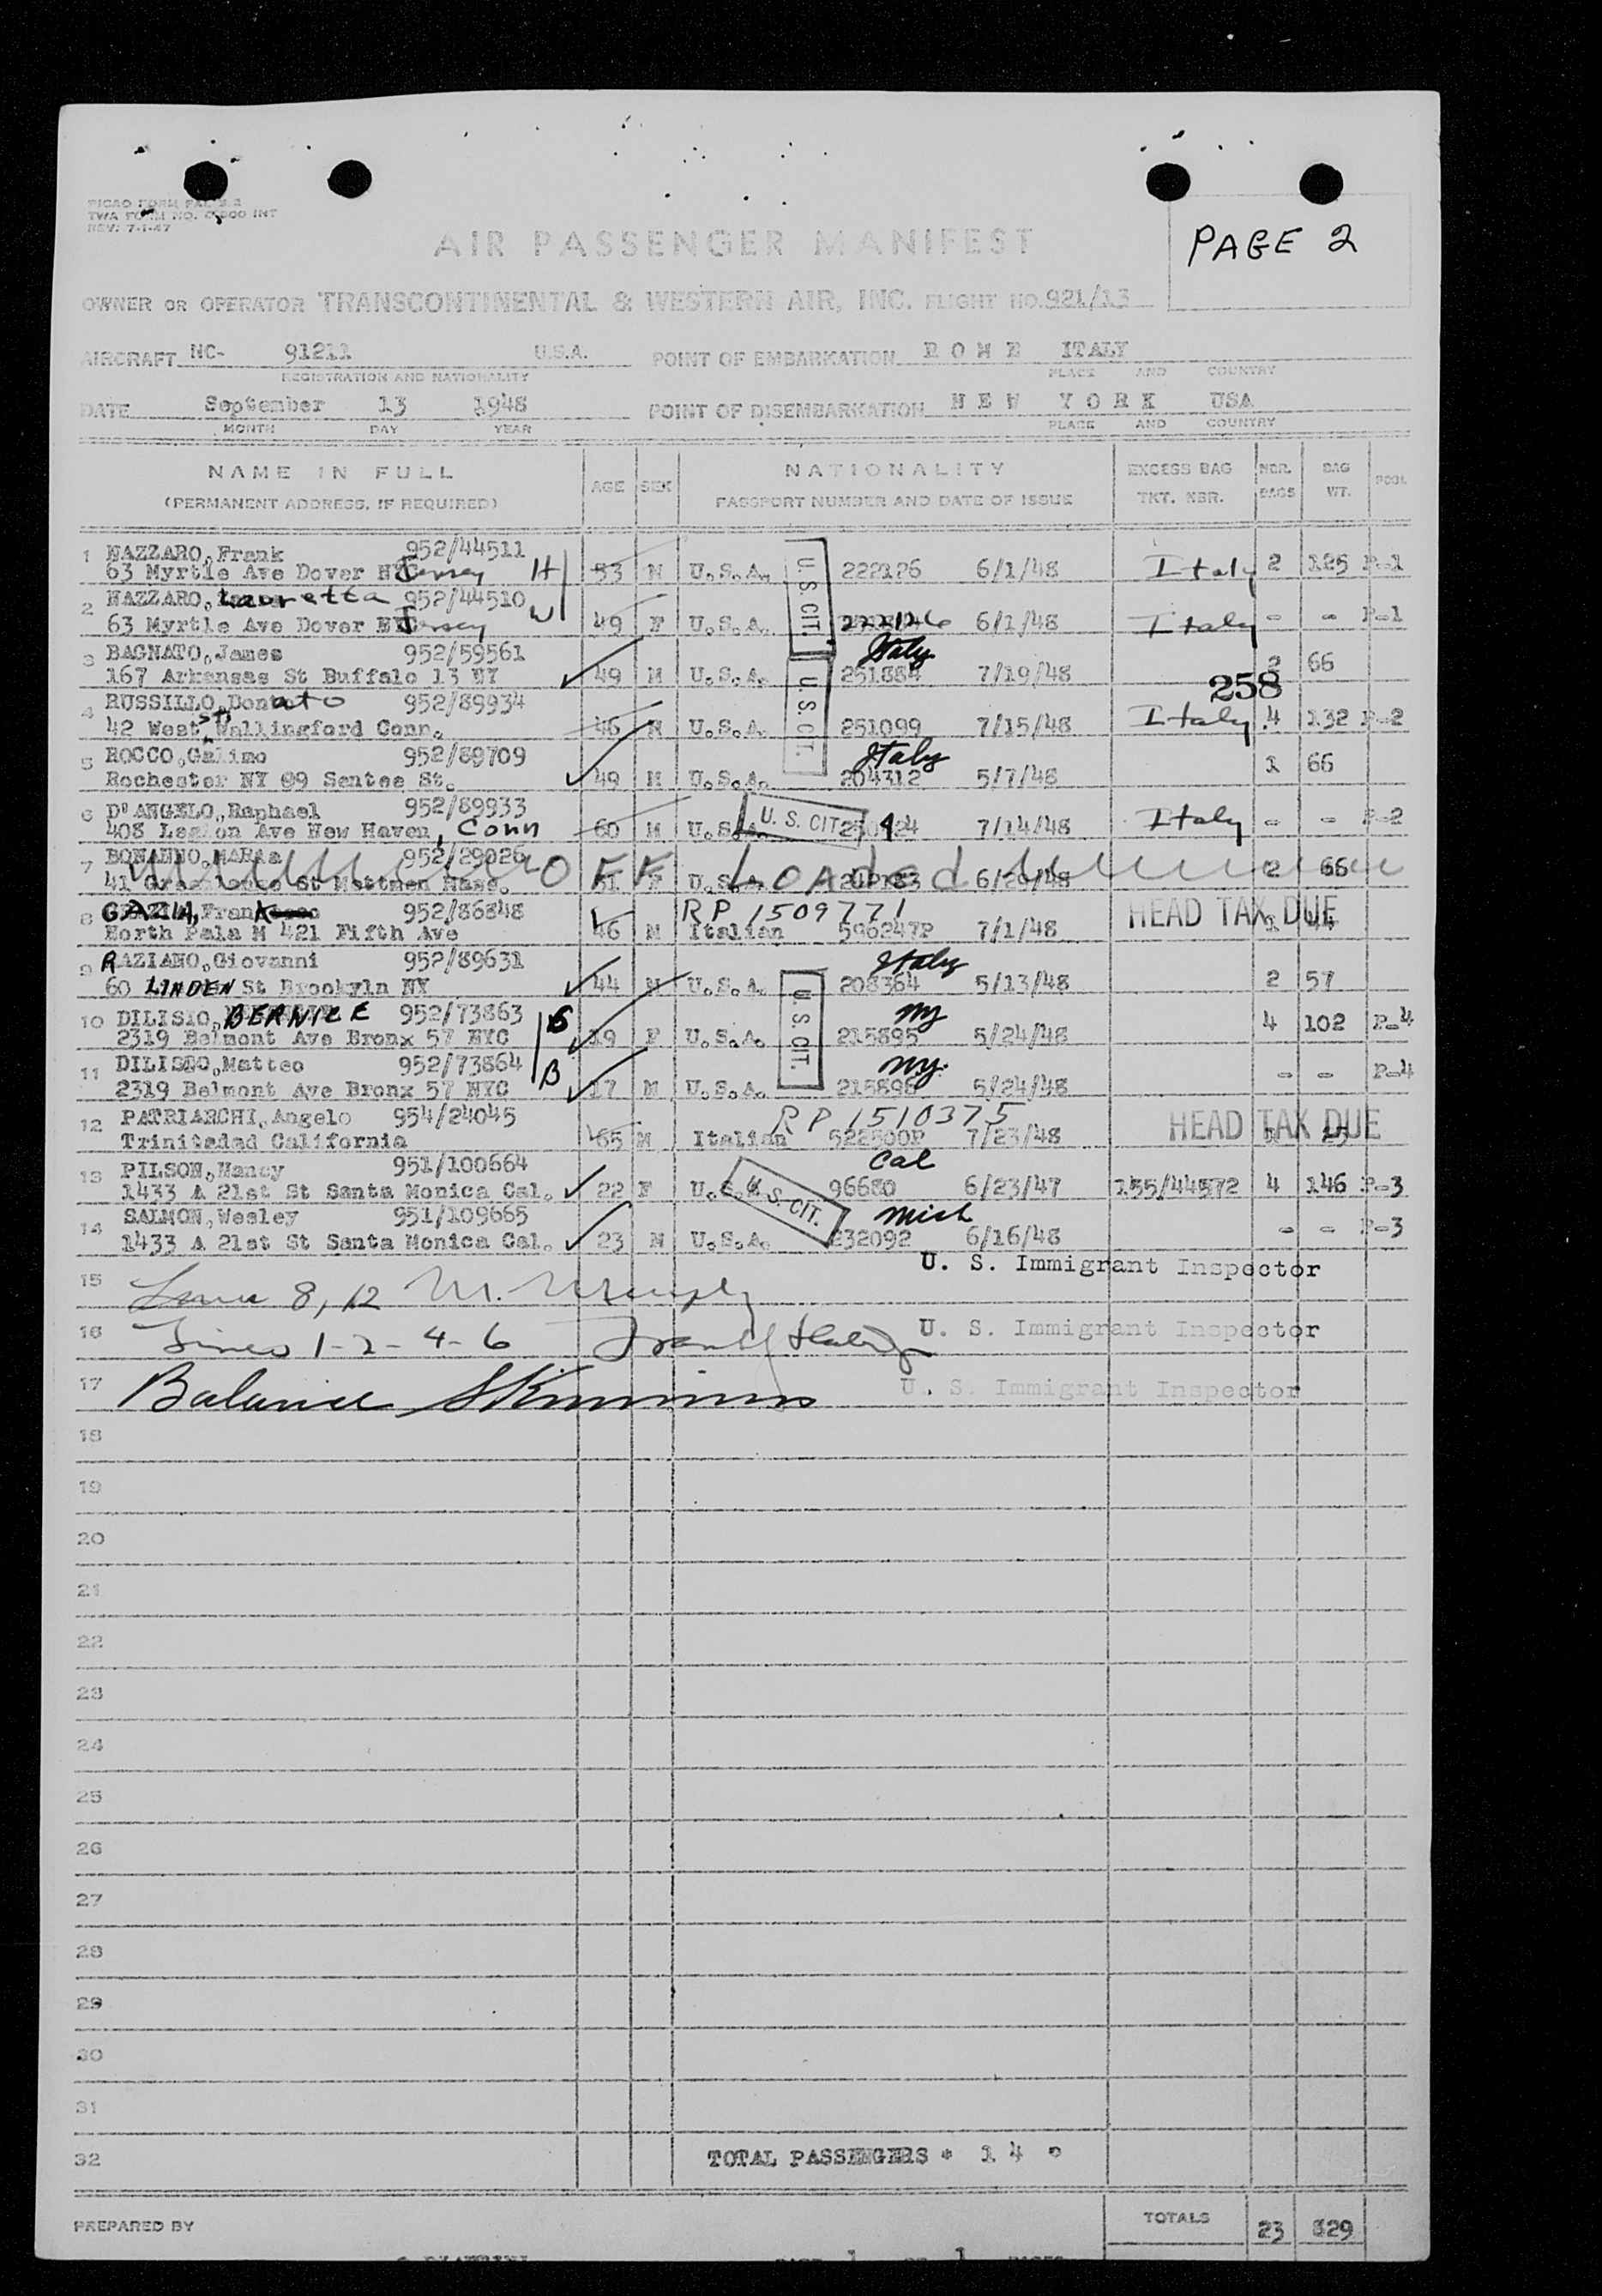 PICAO FORM PAL
TWA FORM NO. INT
REV: 7-1-47
AIR PASSENGER MANIFEST
PAGE 2
OWNER OR OPERATOR TRANSCONTINENTAL & WESTERN AIR, INC. FLIGHT NO. 921/13
AIRCRAFT NC- 91211 U.S.A. POINT OF EMBARKATION ROME ITALY
REGISTRATION AND NATIONALITY PLACE AND COUNTRY
DATE September 13 1948 POINT OF DISEMBARKATION NEW YORK USA
MONTH DAY YEAR PLACE AND COUNTRY
NAME IN FULL AGE SEX NATIONALITY EXCESS BAG NBR. BAG POOL
(PERMANENT ADDRESS, IF REQUIRED) PASSPORT NUMBER AND DATE OF ISSUE TKT. NBR. BAGS WT.
1 NAZZARO, Frank 952/44511
63 Myrtle Ave Dover Jersey H 53 M U.S.A. U.S. CIT. 222126 6/1/48 Italy 2 125 P-1
2 NAZZARO, Lauretta 952/44510
63 Myrtle Ave Dover Jersey W 49 F U.S.A. 222126 6/1/48 Italy - - P-1
3 BAGNATO, James 952/59561 Italy
167 Arkansas St Buffalo 13 NY 49 M U.S.A. U.S. CIT. 251884 7/19/48 2 66
258
4 RUSSILLO, Donato 952/89934
42 West St Wallingford Conn. 46 M U.S.A. 251099 7/15/48 Italy 4 132 P-2
5 ROCCO, Galimo 952/89709 Italy
Rochester NY 89 Santee St. 49 M U.S.A. 204312 5/7/48 1 66
6 D'ANGELO, Raphael 952/89933
408 Ave New Haven, Conn 60 M U.S.A. U. S. CIT. 7/14/48 Italy - - P-2
7 BONANNO, 952/29026 OFF Loaded
41 St Mass. 51 F U.S.A. 2 66
8 GAZIA, Frank 952/86848 RP 1509771 HEAD TAX DUE
North Pala M 421 Fifth Ave 46 M Italian 596247P 7/1/48
9 RAZIANO, Giovanni 952/89631 Italy
60 LINDEN St Brookyln NY 44 M U.S.A. 208364 5/13/48 2 57
10 DILISIO, BERNICE 952/73863 S NY 4 102 P-4
2319 Belmont Ave Bronx 57 NYC 19 F U.S.A. U.S. CIT. 215895 5/24/48
11 DILISIO, Matteo 952/73864 B NY. - - P-4
2319 Belmont Ave Bronx 57 NYC 17 M U.S.A. 215896 5/24/48
12 PATRIARCHI, Angelo 954/24045 RP 1510375 HEAD TAX DUE
Trinitadad California 65 M Italian 522500P 7/23/48
13 PILSON, Nancy 951/100664 Cal
1433 A 21st St Santa Monica Cal. 22 F U.S. CIT. 96680 6/23/47 155/44572 4 146 P-3
14 SALMON, Wesley 951/109665 Mich
1433 A 21st St Santa Monica Cal. 23 M U.S.A. 232092 6/16/48 - - P-3
U. S. Immigrant Inspector
15 8, 12 M.
16 Lines 1-2-4-6 U. S. Immigrant Inspector
17 Balance U. S. Immigrant Inspector
18
19
20
21
22
23
24
25
26
27
28
29
30
31
32 TOTAL PASSENGERS * 14
PREPARED BY TOTALS 23 829